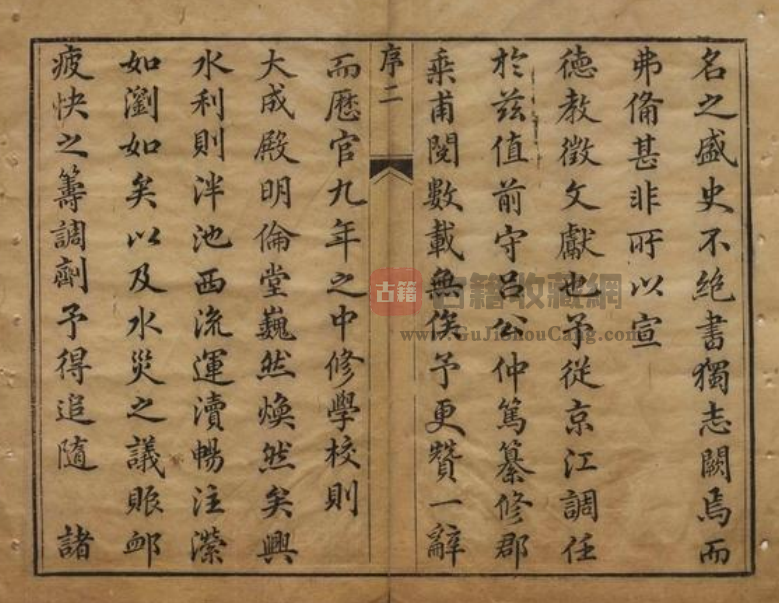 名之盛史不絶書獨志闕焉而
弗俻甚非所以宣
德教徵文獻也予從京江調任
於兹值前守呂公仲篤纂修郡
乘甫閲數載無俟予更贊一辭
序二
而歴官九年之中修學校則
大成殿明倫堂巍然煥然矣興
水利則泮池西流運瀆暢注濴
如瀏如矣以及水災之議賑卹
疲快之籌調劑予得追隨 諸
古籍 古籍收藏網
www.GuJiShouCang.com